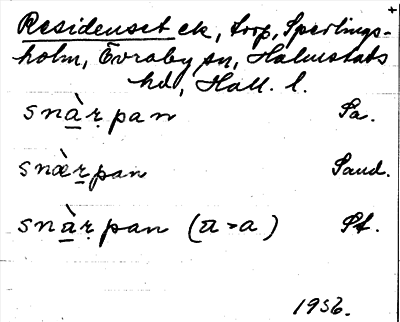 +
Residenset ek, torp, Sperlings-
holm, Övraby sn, Halmstads
hd, Hall. l.
snàṛpan Sa.
snæ̀rpan Sand.
snàṛpan (a > a) St.
1956.